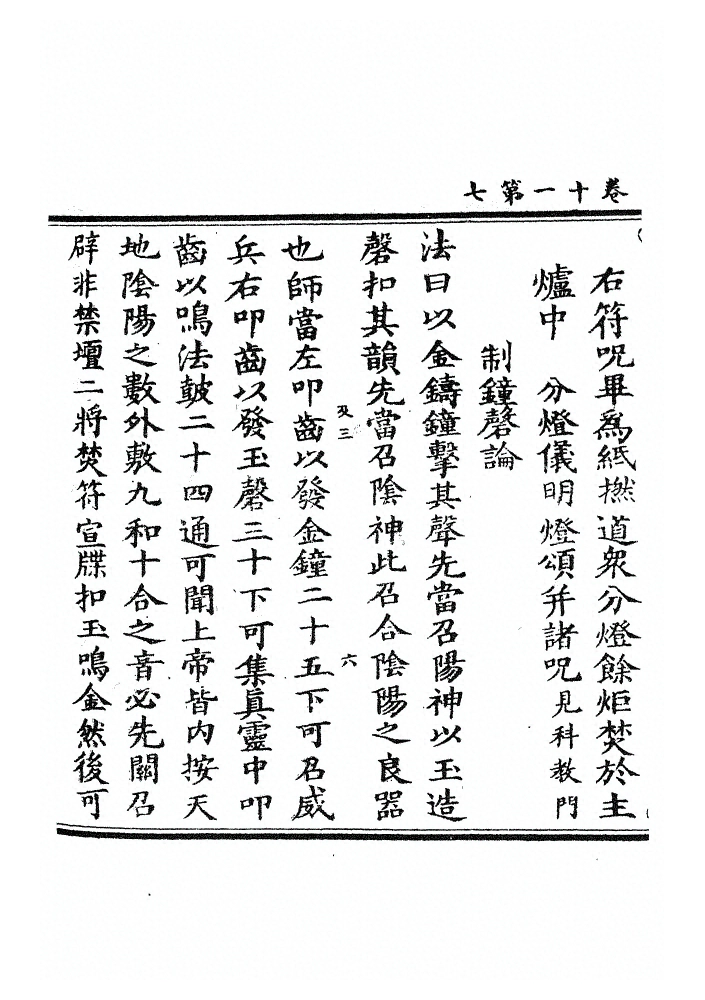 卷十一第七
右符呪畢爲紙撚道衆分燈餘炬焚於主
爐中　分燈儀明燈頌并諸呪見科教門
制鐘磬論
法曰以金鑄鐘擊其聲先當召陽神以玉造
磬扣其韻先當召陰神此召合陰陽之良器
也師當左叩齒以發金鐘二十五下可召威
兵右叩齒以發玉磬三十下可集眞靈中叩
齒以鳴法皷二十四通可聞上帝皆内按天
地陰陽之數外敷九和十合之音必先關召
辟非禁壇二將焚符宣牒扣玉鳴金然後可
三
六